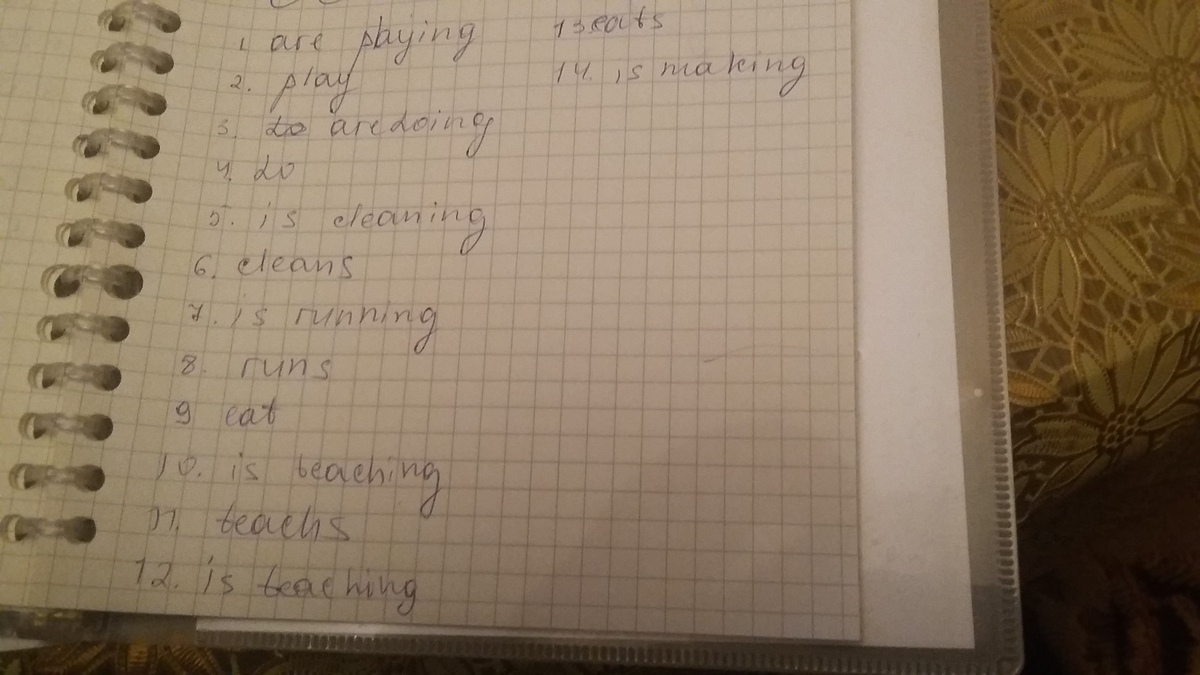 1. are playing
2. play
3. do are doing
4. do
5. is cleaning
6. cleans
7. is running
8. runs
9 eat
10. is teaching
11. teachs
12. is teaching
13 eats
14. is making